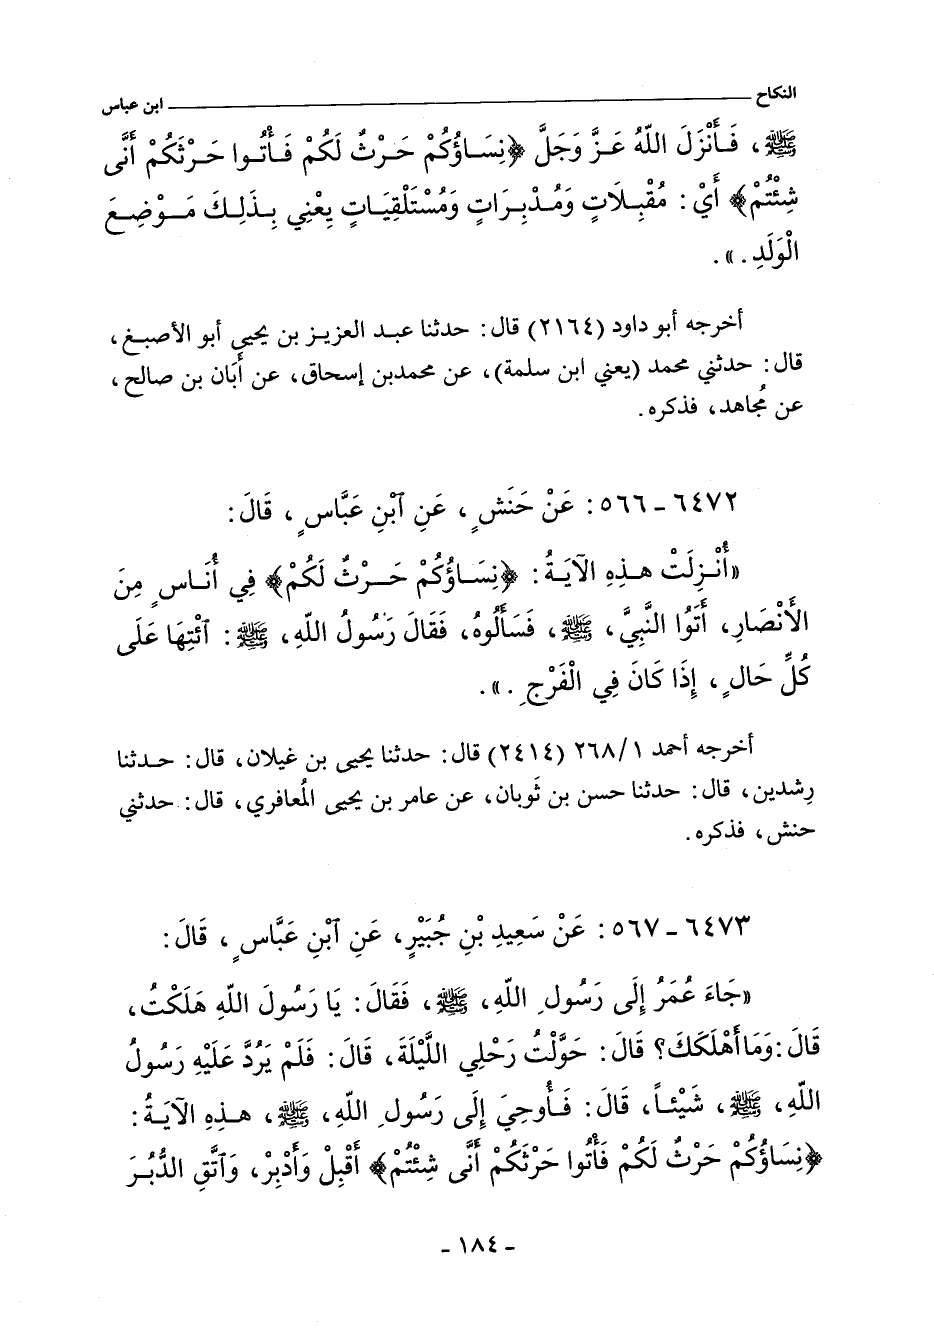 النكاح ــــــــــــــــــــ ابن عباس
ﷺ، فَأَنْزَلَ اللّٰهُ عَزَّ وَجَلَّ ﴿نِسَاؤُكُمْ حَرْثٌ لَكُمْ فَأْتُوا حَرْثَكُمْ أَنَّى
شِئْتُمْ﴾ أَيْ: مُقْبِلَاتٍ وَمُدْبِرَاتٍ وَمُسْتَلْقِيَاتٍ يعْنِي بِذَلِكَ مَوْضِعَ
الْوَلَدِ.».
أخرجه أبو داود (٢١٦٤) قال: حدثنا عبد العزيز بن يحيى أبو الأصبغ،
قال: حدثني محمد (يعني ابن سلمة)، عن محمدبن إسحاق، عن أبَان بن صالح،
عن مُجاهد، فذكره.
٦٤٧٢ - ٥٦٦: عَنْ حَنَشٍ، عَنِ ٱبْنِ عَبَّاسٍ، قَالَ:
«أُنْزِلَتْ هذِهِ الآيَةُ: ﴿نِسَاؤُكُمْ حَرْثٌ لَكُمْ﴾ فِي أُنَاسٍ مِنَ
الأَنْصَارِ، أَتَوُا النَّبِيَّ، ﷺ، فَسَأَلُوهُ، فَقَالَ رَسُولُ اللّٰهِ، ﷺ: ٱئْتِهَا عَلَى
كُلِّ حَالٍ، إِذَا كَانَ فِي الْفَرْجِ.».
أخرجه أحمد ٢٦٨/١ (٢٤١٤) قال: حدثنا يحيى بن غيلان، قال: حدثنا
رِشدين، قال: حدثنا حسن بن ثَوبان، عن عامر بن يحيى المُعافري، قال: حدثني
حنش، فذكره.
٦٤٧٣ - ٥٦٧: عَنْ سَعِيدِ بْنِ جُبَيْرٍ، عَنِ ٱبْنِ عَبَّاسٍ، قَالَ:
«جَاءَ عُمَرُ إِلَى رَسُولِ اللّٰهِ، ﷺ، فَقَالَ: يَا رَسُولَ اللّٰهِ هَلَكْتُ،
قَالَ: وَمَا أَهْلَكَكَ؟ قَالَ: حَوَّلْتُ رَحْلِي اللَّيْلَةَ، قَالَ: فَلَمْ يَرُدَّ عَلَيْهِ رَسُولُ
اللّٰهِ، ﷺ، شَيْئاً، قَالَ: فَأُوحِيَ إِلَى رَسُولِ اللّٰهِ، ﷺ، هذِهِ الآيَةُ:
﴿نِسَاؤُكُمْ حَرْثٌ لَكُمْ فَأْتُوا حَرْثَكُمْ أَنَّى شِئْتُمْ﴾ أَقْبِلْ وَأَدْبِرْ، وَٱتَّقِ الدُّبُرَ
- ١٨٤ -